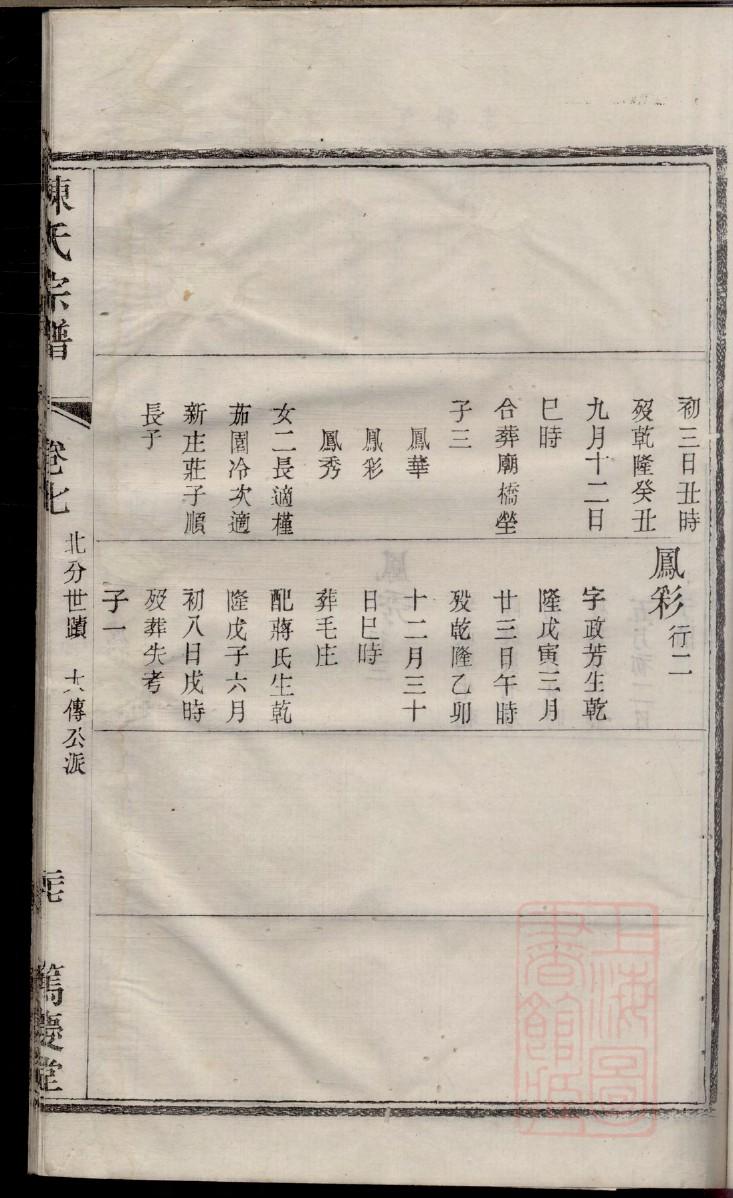 初三日丑時
歿乾隆癸丑
九月十二日
巳時
合葬廟橋塋
子三
鳳華
鳳彩
鳳秀
女二長適槿
茄園冷次適
新庄莊子順
長子
鳳彩行二
字政芳生乾
隆戊寅三月
廿三日午時
歿乾隆乙卯
十二月三十
日巳時
葬毛庄
配蔣氏生乾
隆戊子六月
初八日戌時
歿葬失考
子一
陳氏宗譜
卷七
北分世蹟 大傳公派
篤慶堂
上海圖
書館藏